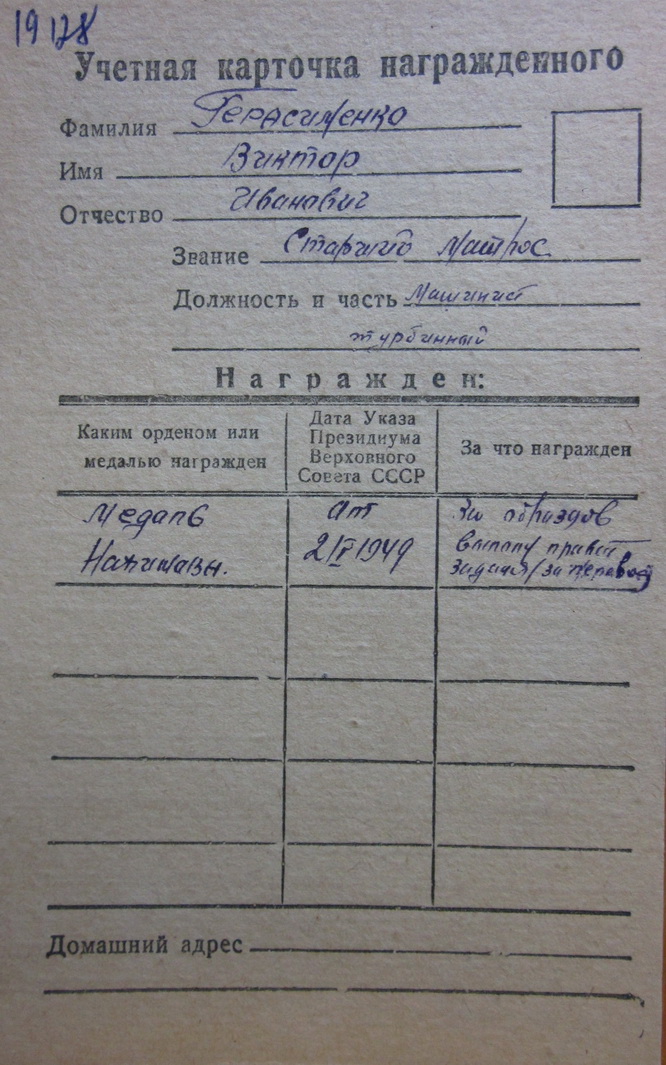 19128
Учетная карточка награжденного
Фамилия Герасименко
Имя Виктор
Отчество Иванович
Звание Старший матрос
Должность и часть Машинист
турбинный
Награжден:
Каким орденом или медалью награжден
Дата Указа Президиума Верховного Совета СССР
За что награжден
Медаль
Нахимова.
От
2/V 1949
За образцов
выполн правит
задания/за перевод
Домашний адрес